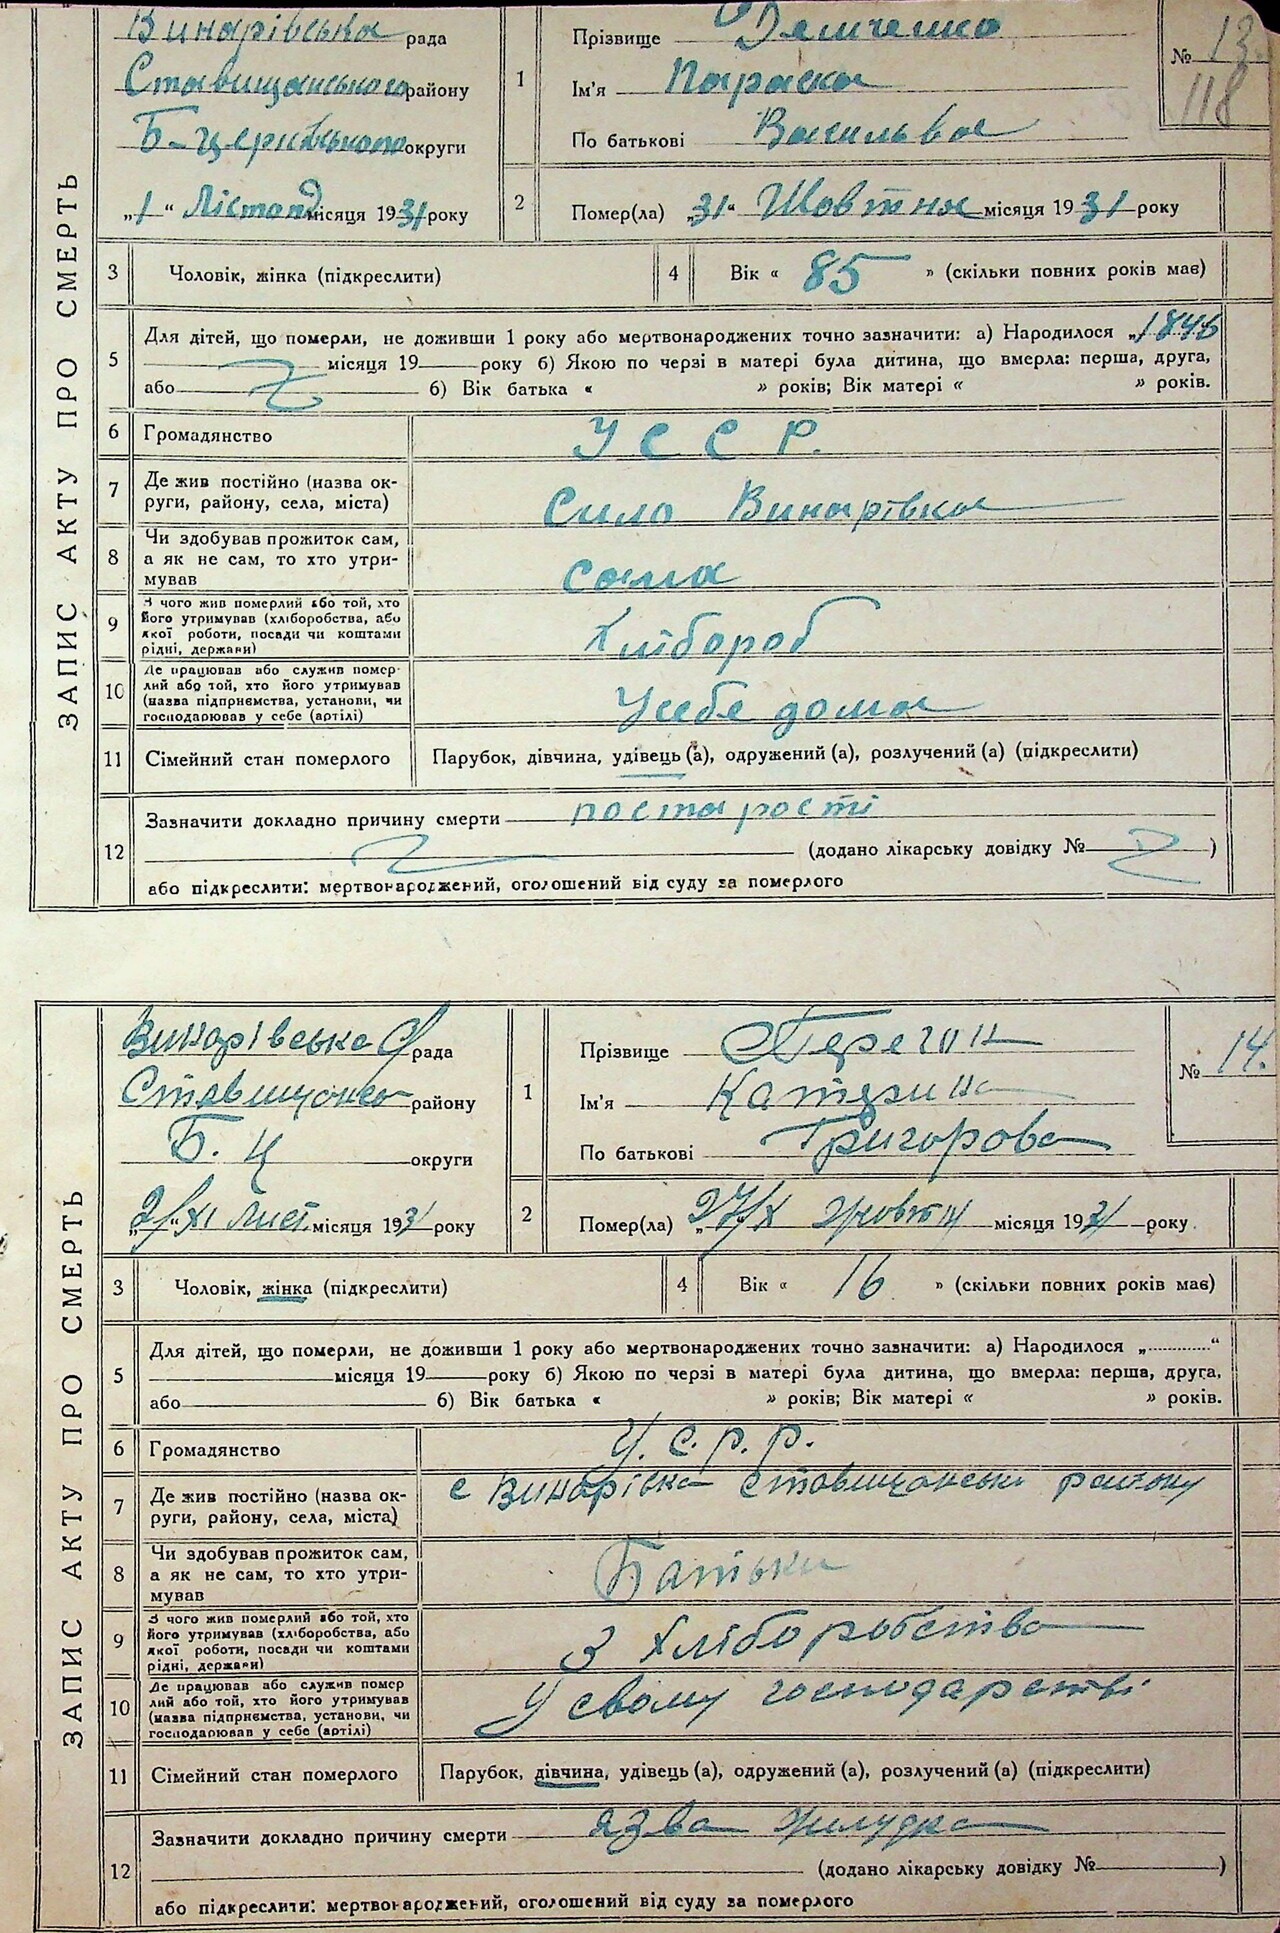 ЗАПИС АКТУ ПРО СМЕРТЬ
Винарівська рада
Ставищанського району
Б-церківського округи
„1“ Лістопад місяця 1931 року
1 Прізвище Демченко
Ім'я Параска
По батькові Васильва
№ 13.
118
2 Помер(ла) „31“ Жовтня місяця 1931 року
3 Чоловік, жінка (підкреслити)
4 Вік « 85 » (скільки повних років має)
5 Для дітей, що померли, не доживши 1 року або мертвонароджених точно зазначити: а) Народилося „1846
місяця 19 року б) Якою по черзі в матері була дитина, що вмерла: перша, друга,
або б) Вік батька « » років; Вік матері « » років.
6 Громадянство У С С Р.
7 Де жив постійно (назва ок-
руги, району, села, міста) Сило Винарівка
8 Чи здобував прожиток сам,
а як не сам, то хто утри-
мував сама
9 З чого жив померлий або той, хто
його утримував (хліборобства, або
якої роботи, посади чи коштами
рідні, держави) Хлібороб
10 Де працював або служив помер-
лий або той, хто його утримував
(назва підприємства, установи, чи
господарював у себе (артілі) Усебе дома
11 Сімейний стан померлого Парубок, дівчина, удівець (а), одружений (а), розлучений (а) (підкреслити)
12 Зазначити докладно причину смерти постарості
(додано лікарську довідку № )
або підкреслити: мертвонароджений, оголошений від суду за померлого
ЗАПИС АКТУ ПРО СМЕРТЬ
Винарівська рада
Ставищанск району
Б. Ц округи
„2/XI“ лист місяця 1931 року
1 Прізвище Перегон
Ім'я Катерина
По батькові Григорова
№ 14.
2 Помер(ла) „27/X жовтн місяця 1931 року
3 Чоловік, жінка (підкреслити)
4 Вік « 16 » (скільки повних років має)
5 Для дітей, що померли, не доживши 1 року або мертвонароджених точно зазначити: а) Народилося „............“
місяця 19 року б) Якою по черзі в матері була дитина, що вмерла: перша, друга,
або б) Вік батька « » років; Вік матері « » років.
6 Громадянство У. С. Р. Р.
7 Де жив постійно (назва ок-
руги, району, села, міста) с Винарівка Ставищанськ району
8 Чи здобував прожиток сам,
а як не сам, то хто утри-
мував Батьки
9 З чого жив померлий або той, хто
його утримував (хліборобства, або
якої роботи, посади чи коштами
рідні, держави) З хліборобства
10 Де працював або служив помер
лий або той, хто його утримував
(назва підприємства, установи, чи
господарював у себе (артілі) У свому господарстві
11 Сімейний стан померлого Парубок, дівчина, удівець (а), одружений (а), розлучений (а) (підкреслити)
12 Зазначити докладно причину смерти язва жилудка
(додано лікарську довідку № )
або підкреслити: мертвонароджений, оголошений від суду за померлого